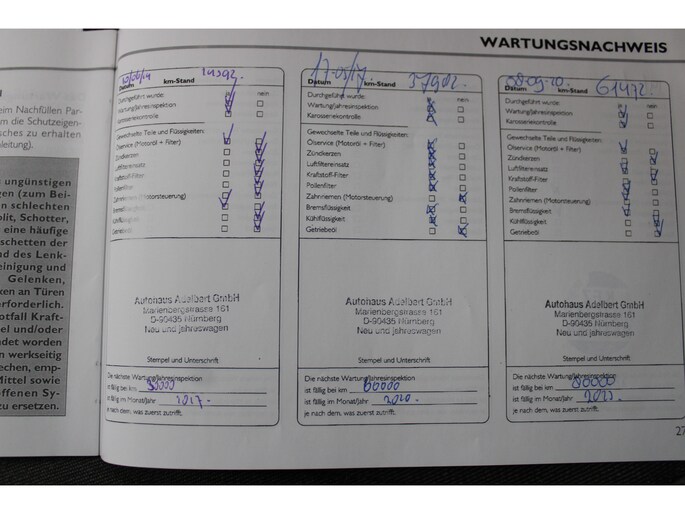 WARTUNGSNACHWEIS
eim Nachfüllen Par-
m die Schutzeigen-
sches zu erhalten
leitung).
s ungünstigen
gen (zum Bei-
n schlechten
olit, Schotter,
eine häufige
schetten der
nd des Lenk-
einigung und
Gelenken,
ken an Türen
erforderlich.
otfall Kraft-
el und/oder
ndet worden
n werkseitig
echen, emp-
Mittel sowie
offenen Sy-
zu ersetzen.
Datum km-Stand
Durchgeführt wurde: ja nein
Wartung/Jahresinspektion
Karosseriekontrolle
Gewechselte Teile und Flüssigkeiten:
Ölservice (Motoröl + Filter)
Zündkerzen
Luftfiltereinsatz
Kraftstoff-Filter
Pollenfilter
Zahnriemen (Motorsteuerung)
Bremsflüssigkeit
Kühlflüssigkeit
Getriebeöl
Autohaus Adelbert GmbH
Marienbergstrasse 161
D-90435 Nürnberg
Neu und jahreswagen
Stempel und Unterschrift
Die nächste Wartung/Jahresinspektion
ist fällig bei km
ist fällig im Monat/Jahr 2017.
je nach dem, was zuerst zutrifft.
17-05/17 37902.
Datum km-Stand
Durchgeführt wurde: ja nein
Wartung/Jahresinspektion
Karosseriekontrolle
Gewechselte Teile und Flüssigkeiten:
Ölservice (Motoröl + Filter)
Zündkerzen
Luftfiltereinsatz
Kraftstoff-Filter
Pollenfilter
Zahnriemen (Motorsteuerung)
Bremsflüssigkeit
Kühlflüssigkeit
Getriebeöl
Autohaus Adelbert GmbH
Marienbergstrasse 161
D-90435 Nürnberg
Neu und jahreswagen
Stempel und Unterschrift
Die nächste Wartung/Jahresinspektion
ist fällig bei km 60000
ist fällig im Monat/Jahr 2020.
je nach dem, was zuerst zutrifft.
61472
Datum km-Stand
Durchgeführt wurde: ja nein
Wartung/Jahresinspektion
Karosseriekontrolle
Gewechselte Teile und Flüssigkeiten:
Ölservice (Motoröl + Filter)
Zündkerzen
Luftfiltereinsatz
Kraftstoff-Filter
Pollenfilter
Zahnriemen (Motorsteuerung)
Bremsflüssigkeit
Kühlflüssigkeit
Getriebeöl
Autohaus Adelbert GmbH
Marienbergstrasse 161
D-90435 Nürnberg
Neu und jahreswagen
Stempel und Unterschrift.
Die nächste Wartung/Jahresinspektion
ist fällig bei km 80000
ist fällig im Monat/Jahr
je nach dem, was zuerst zutrifft.
27